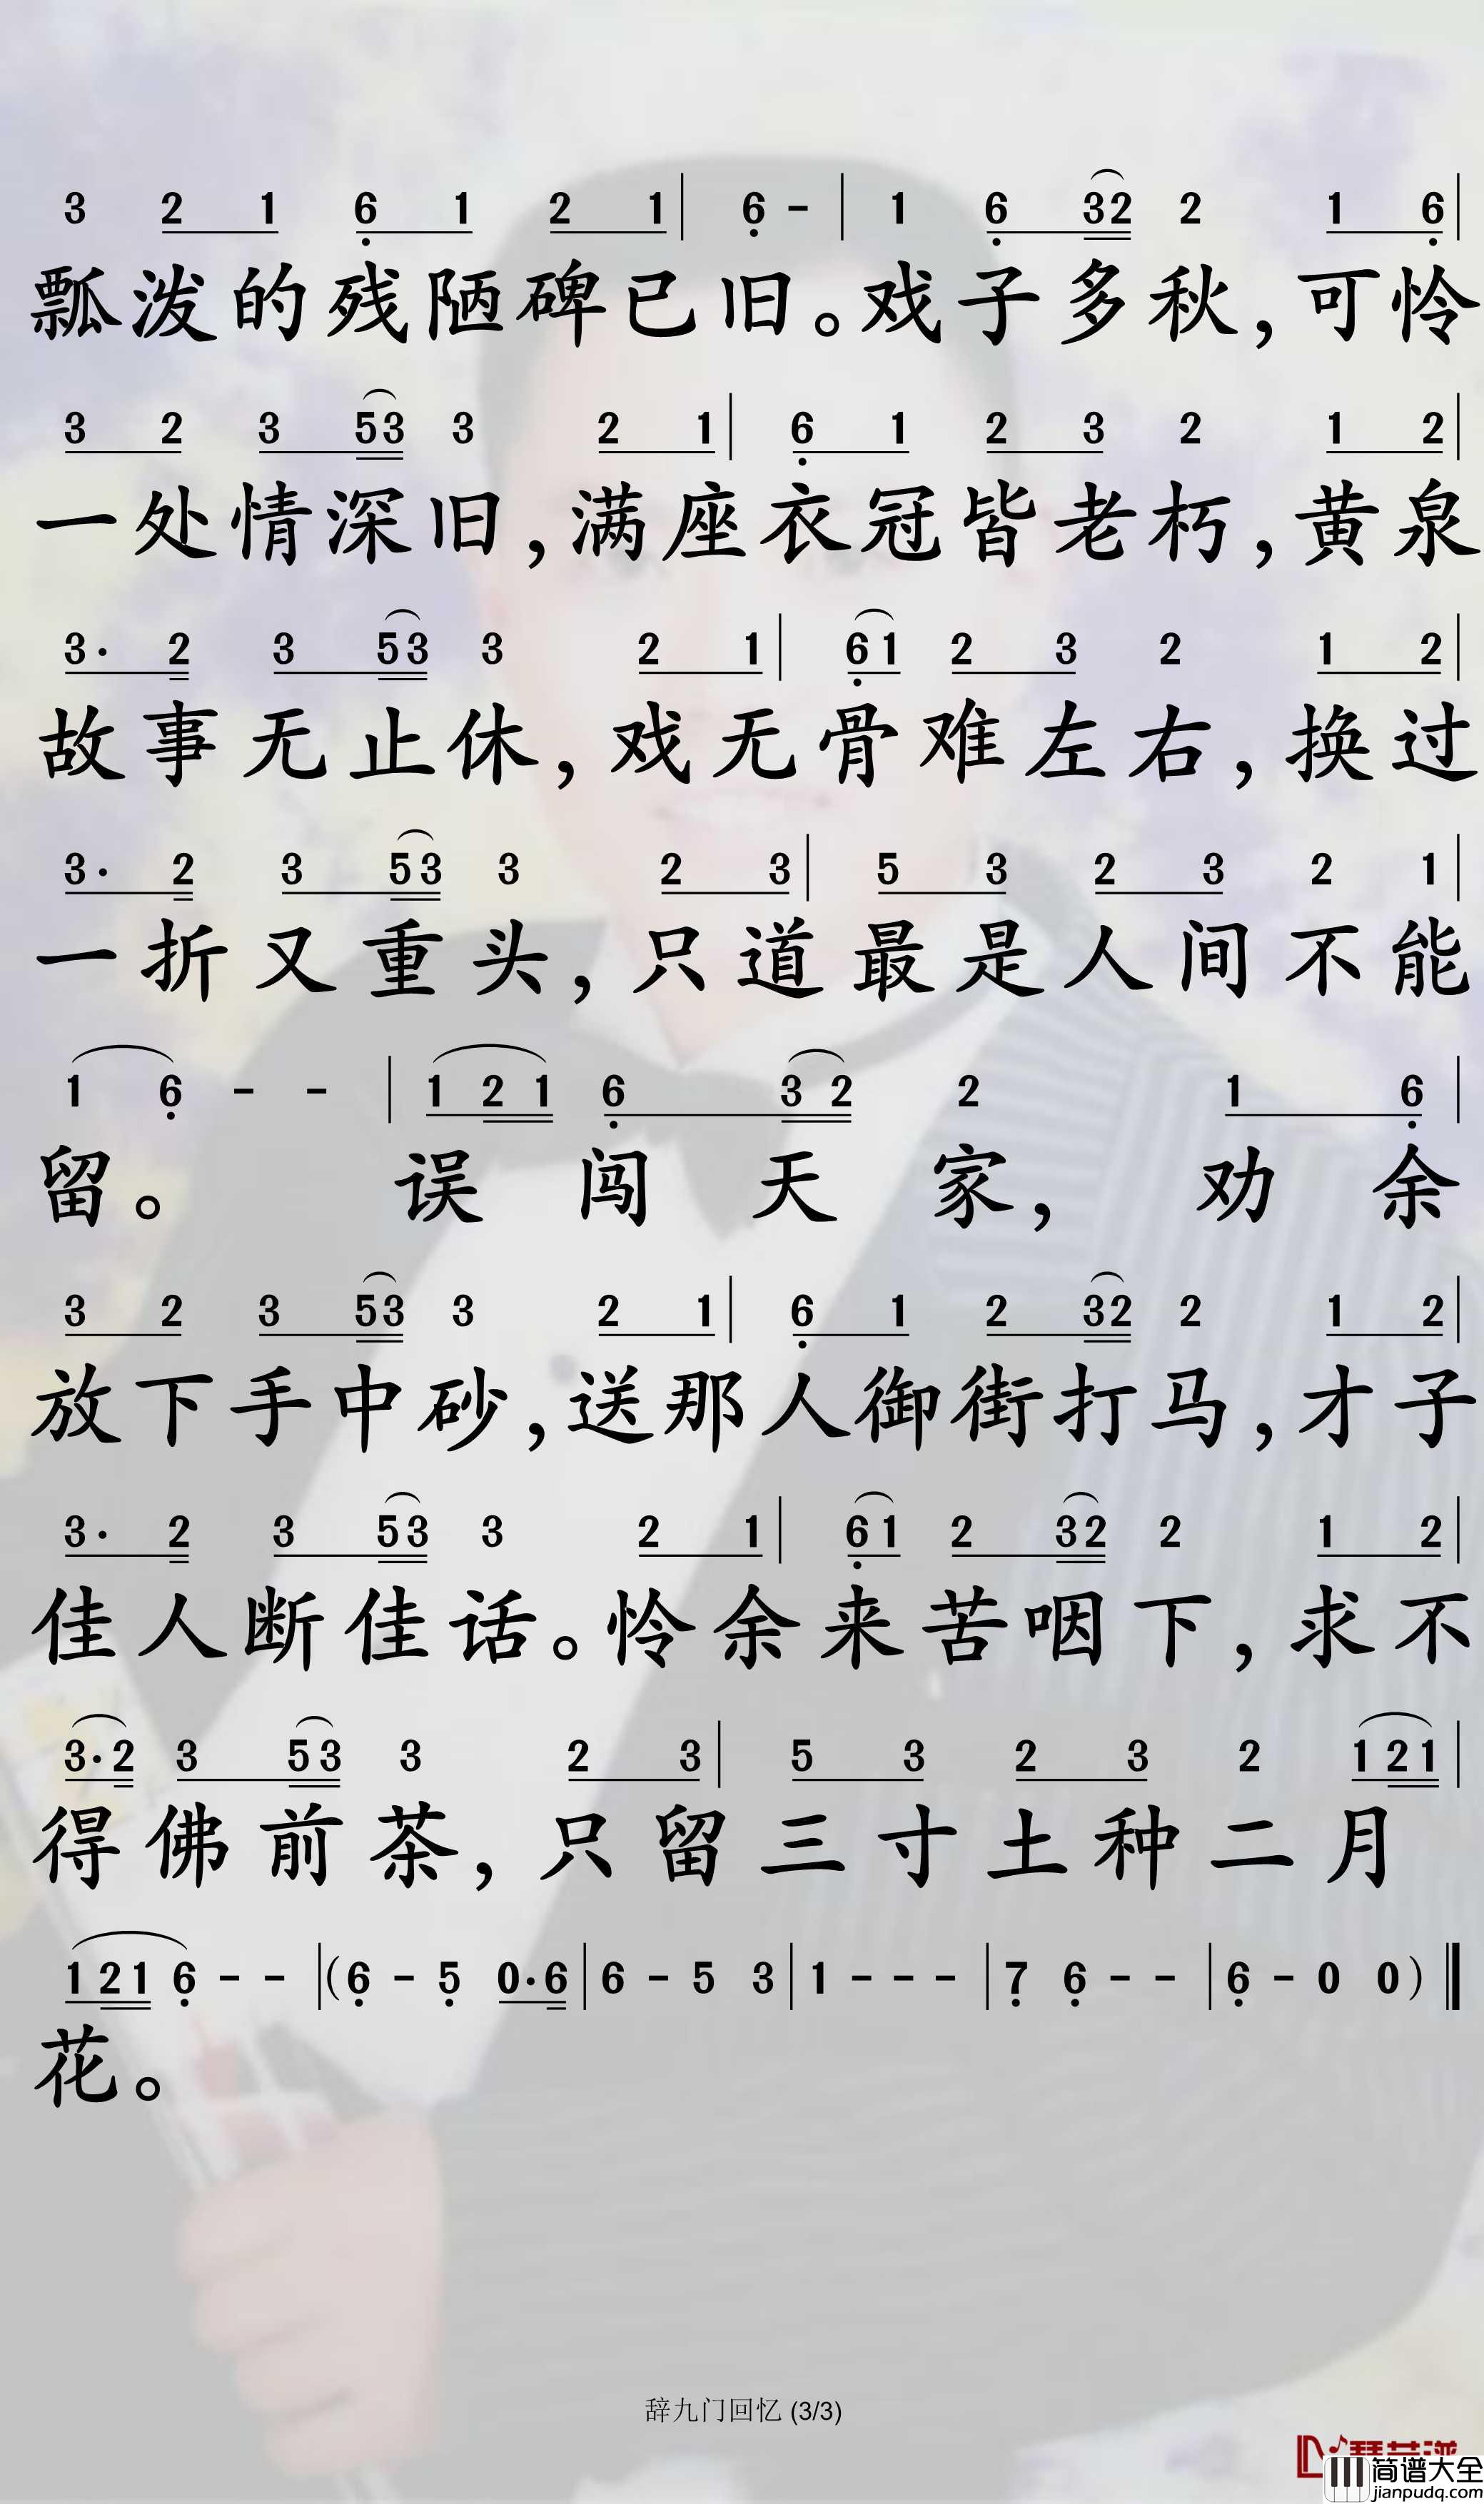 3 2 1 6 1 2 1 | 6 - | 1 6 32 2 1 6 |
瓢泼的残陋碑已旧。戏子多秋,可怜
3 2 3 53 3 2 1 | 6 1 2 3 2 1 2 |
一处情深旧,满座衣冠皆老朽,黄泉
3· 2 3 53 3 2 1 | 61 2 3 2 1 2 |
故事无止休,戏无骨难左右,换过
3· 2 3 53 3 2 3 | 5 3 2 3 2 1 |
一折又重头,只道最是人间不能
1 6 - - | 1 2 1 6 3 2 2 1 6 |
留。 误闯天家,劝余
3 2 3 53 3 2 1 | 6 1 2 32 2 1 2 |
放下手中砂,送那人御街打马,才子
3· 2 3 53 3 2 1 | 61 2 32 2 1 2 |
佳人断佳话。怜余来苦咽下,求不
3·2 3 53 3 2 3 | 5 3 2 3 2 121 |
得佛前茶,只留三寸土种二月
121 6 - - | (6 - 5 0·6 | 6 - 5 3 | 1 - - - | 7 6 - - | 6 - 0 0) ‖
花。
辞九门回忆 (3/3)
简谱大全
jianpudq.com